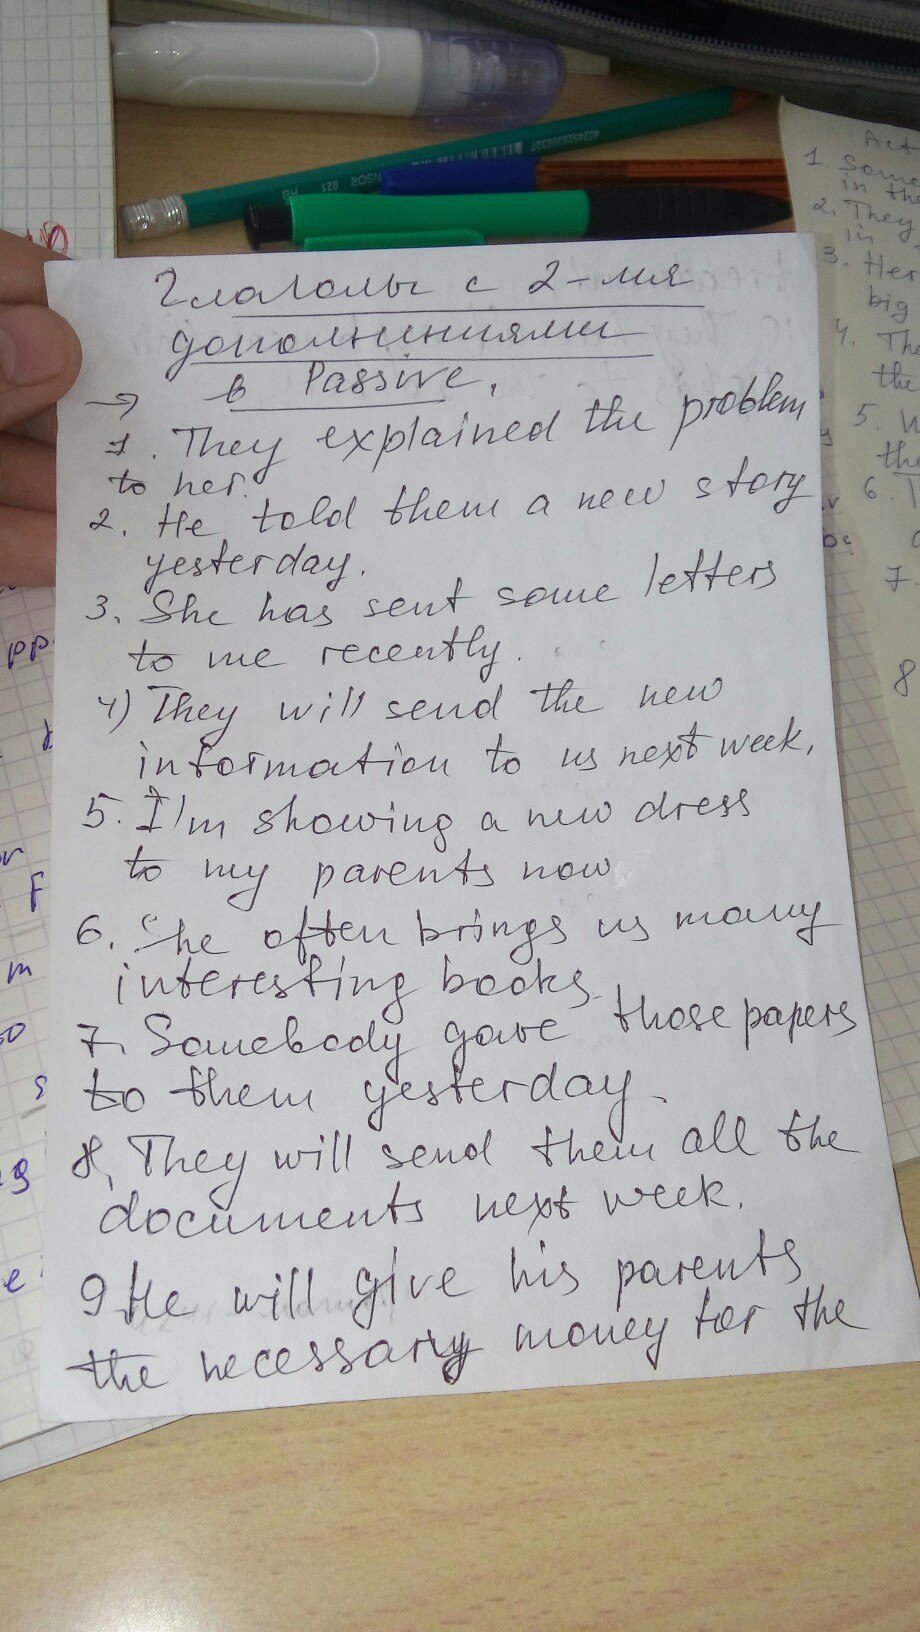 Глаголы с 2-мя
дополнениями
в Passive.
→
1. They explained the problem
to her.
2. He told them a new story
yesterday.
3. She has sent some letters
to me recently.
4) They will send the new
information to us next week,
5. I'm showing a new dress
to my parents now
6. She often brings us many
interesting books.
7. Somebody gave those papers
to them yesterday.
8, They will send them all the
documents next week.
9. He will give his parents
the necessary money for the
1
in the
2. They
in
3. Her
big
4.
the
5. W
the
6.
7
8
HB